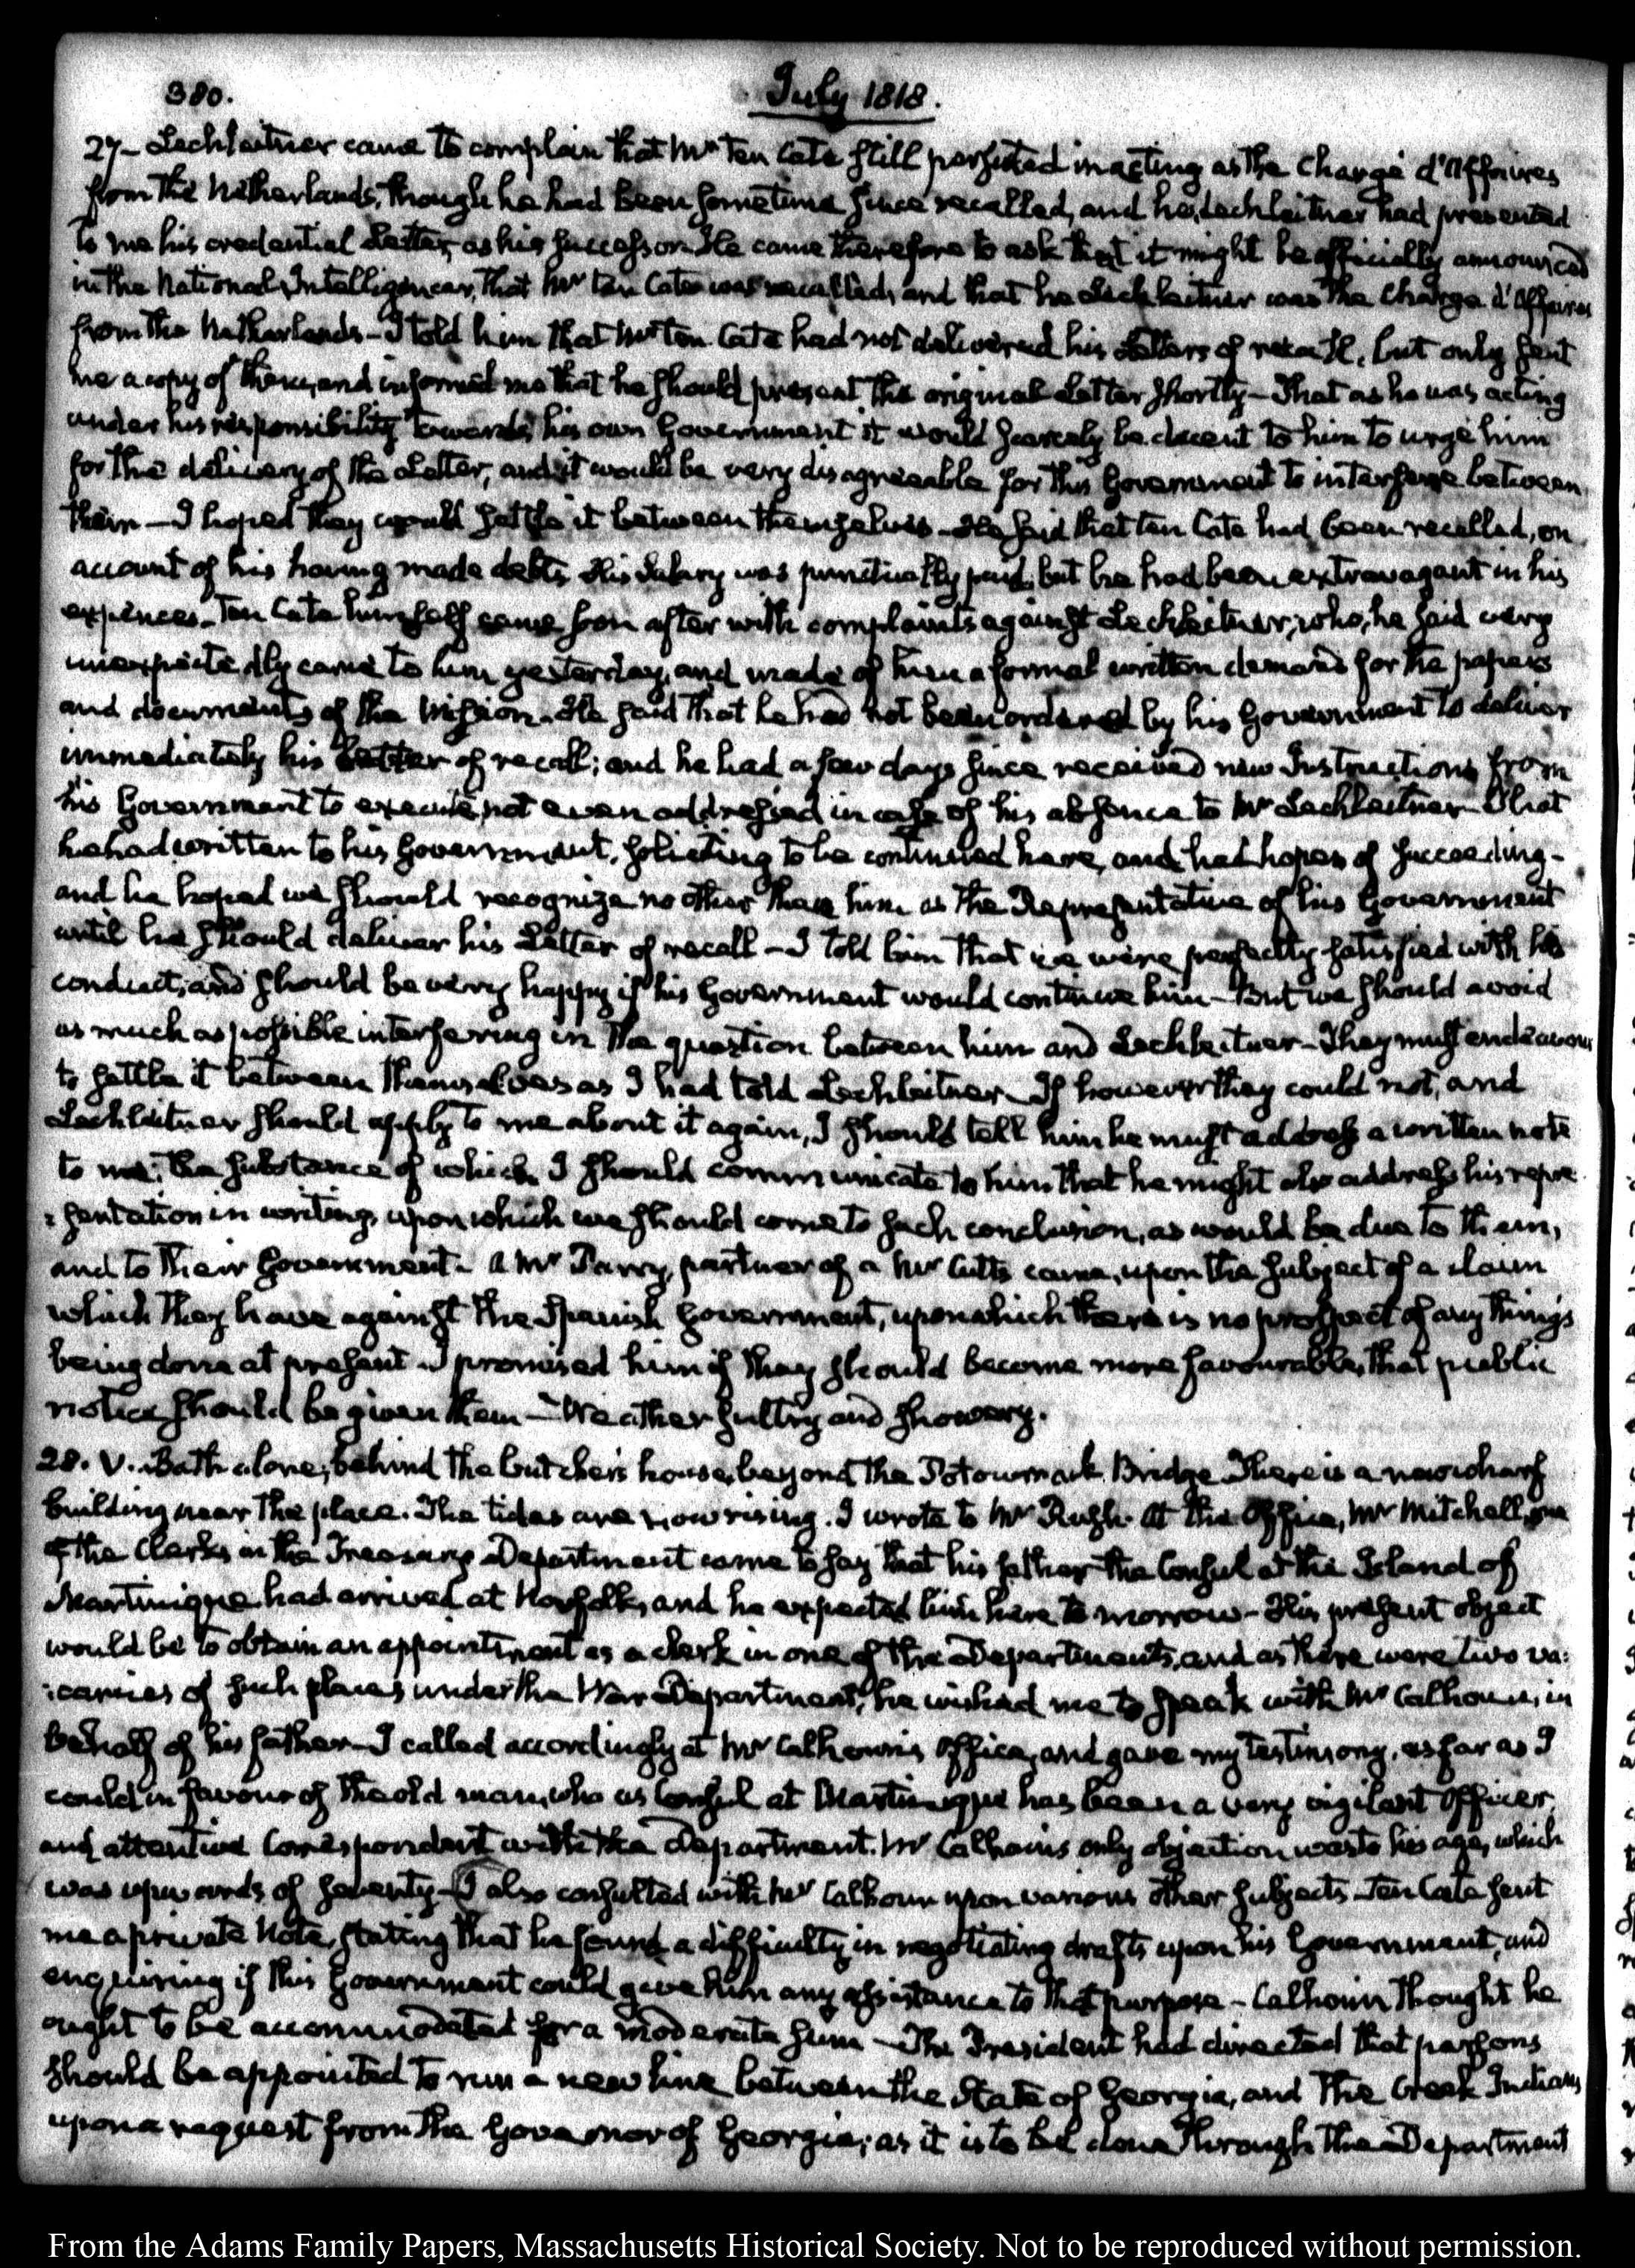 380.
July 1818.
27– Lechleitner came to complain that Mr ten Cate still persisted in acting as the Chargé d'Affaires
from the Netherlands, though he had been sometime since recalled, and he, Lechleitner had presented
to me his credential Letter, as his successor. He came therefore to ask that it might be officially announced
in the National Intelligencer, that Mr ten Cate was recalled, and that he Lechleitner was the Chargé d'Affaires
from the Netherlands– I told him that Mr ten Cate had not delivered his Letters of recall, but only sent
me a copy of them, and informed me that he should present the original Letter shortly– That as he was acting
under his responsibility towards his own Government it would scarcely be decent to him to urge him
for the delivery of the Letter, and it would be very disagreeable for this Government to interfere between
them– I hoped they would settle it between themselves– He said that ten Cate had been recalled, on
account of his having made debts. His Salary was punctually paid, but he had been extravagant in his
expences. Ten Cate himself came soon after with complaints against Lechleitner, who, he said very
unexpectedly came to him yesterday, and made of him a formal written demand for the papers
and documents of the Mission. He said that he had not been ordered by his Government to deliver
immediately his Letter of recall; and he had a few days since received new Instructions from
his Government to execute, not even addressed in case of his absence to Mr Lechleitner– That
he had written to his Government, soliciting to be continued here, and had hopes of succeeding–
and he hoped we should recognize no other than him as the Representative of his Government
until he should deliver his Letter of recall– I told him that we were perfectly satisfied with his
conduct, and should be very happy if his Government would continue him– But we should avoid
as much as possible interfering in the question between him and Lechleitner– They must endeavour
to settle it between themselves as I had told Lechleitner– If however they could not, and
Lechleitner should apply to me about it again, I should tell him he must address a written note
to me; the substance of which I should communicate to him that he might also address his repre
:sentation in writing, upon which we should come to such conclusion, as would be due to them,
and to their Government. A Mr Parry, partner of a Mr Cutts came, upon the subject of a claim
which they have against the Spanish Government, upon which there is no prospect of any thing's
being done at present. I promised him if they should become more favourable, that public
notice should be given them– Weather sultry and showery.
28. V. Bath alone, behind the butcher's house, beyond the Potowmack Bridge. There is a new wharf
building near the place. The tides are now rising. I wrote to Mr Rush. At the Office, Mr Mitchell, one
of the Clerks in the Treasury Department came to say that his father the Consul at the Island of
Martinique had arrived at Norfolk, and he expected him here to morrow– His present object
would be to obtain an appointment as a clerk in one of the Departments, and as there were two va:
:cancies of such places under the War Department, he wished me to speak with Mr Calhoun, in
behalf of his father– I called accordingly at Mr Calhoun's Office, and gave my testimony, as far as I
could in favour of the old man, who as Consul at Martinique has been a very vigilant Officer,
and attentive Correspondent with the Department. Mr Calhoun's only objection was to his age, which
was upwards of seventy– I also consulted with Mr Calhoun upon various other subjects– Ten Cate sent
me a private Note, stating that he found a difficulty in negotiating drafts upon his Government, and
enquiring if this Government could give him any assistance to that purpose– Calhoun thought he
ought to be accommodated for a moderate sum– The President had directed that persons
should be appointed to run a new line between the State of Georgia, and the Creek Indians
upon a request from the Governor of Georgia; as it is to be done through the Department
From the Adams Family Papers, Massachusetts Historical Society. Not to be reproduced without permission.